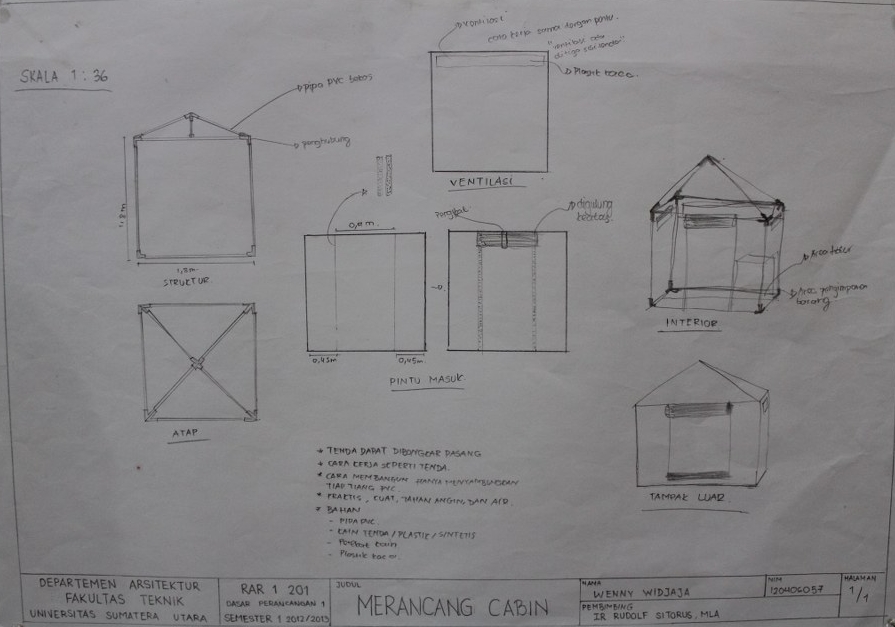 SKALA 1 : 36
pipa PVC
penghubung
1,8m
STRUKTUR
ATAP
ventilasi
cara kerja sama dengan pintu.
VENTILASI
0,45m
0,45m
PINTU MASUK
digulung
INTERIOR
Area tidur
Area penyimpanan
barang
TAMPAK LUAR
TENDA DAPAT DIBONGKAR PASANG
CARA KERJA SEPERTI TENDA.
CARA MEMBANGUN HANYA MENYAMBUNGKAN
TIAP TIANG PVC.
PRAKTIS, KUAT, TAHAN ANGIN, DAN AIR.
BAHAN
- PIPA PVC
- KAIN TENDA / PLASTIK / SINTETIS
- Perekat kain
DEPARTEMEN ARSITEKTUR
FAKULTAS TEKNIK
UNIVERSITAS SUMATERA UTARA
RAR 1 201
DASAR PERANCANGAN 1
SEMESTER 1 2012/2013
JUDUL
MERANCANG CABIN
NAMA
WENNY WIDJAJA
PEMBIMBING
IR RUDOLF SITORUS, MLA
NIM
120406057
HALAMAN
1/1